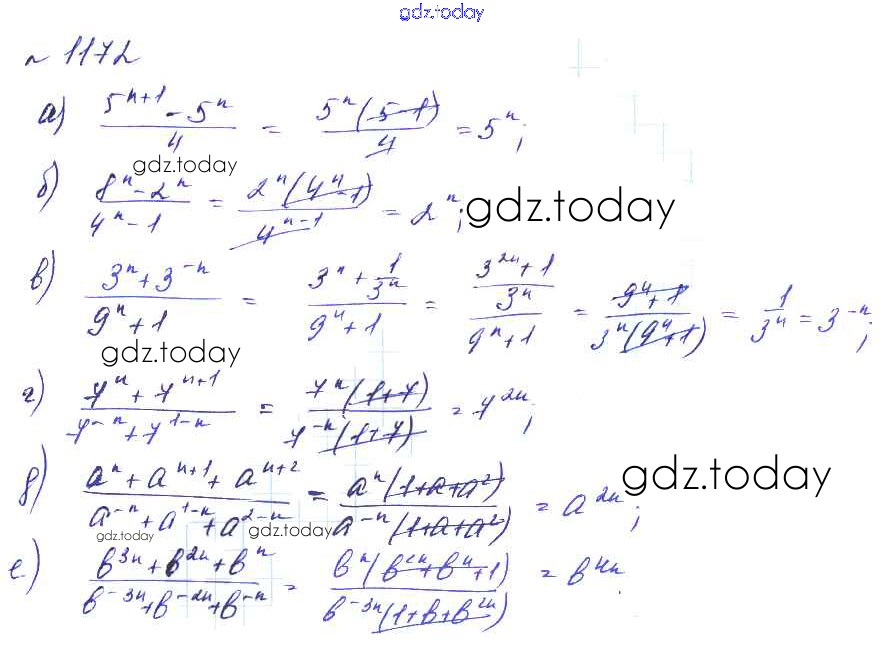 gdz.today
№ 1172
а) (5^(n+1) - 5^n)/4 = (5^n(5-1))/4 = 5^n;
gdz.today
б) (8^n - 2^n)/(4^n - 1) = (2^n(4^n-1))/(4^(n-1)) = 2^n; gdz.today
в) (3^n + 3^(-n))/(9^n + 1) = (3^n + 1/3^n)/(9^n + 1) = ((3^(2n) + 1)/3^n)/(9^n + 1) = (9^n + 1)/(3^n(9^n + 1)) = 1/3^n = 3^(-n);
gdz.today
г) (7^n + 7^(n+1))/(7^(-n) + 7^(1-n)) = (7^n(1+7))/(7^(-n)(1+7)) = 7^(2n);
д) (a^n + a^(n+1) + a^(n+2))/(a^(-n) + a^(1-n) + a^(2-n)) = (a^n(1+a+a^2))/(a^(-n)(1+a+a^2)) = a^(2n); gdz.today
gdz.today gdz.today
е) (b^(3n) + b^(2n) + b^n)/(b^(-3n) + b^(-2n) + b^(-n)) = (b^n(b^(2n) + b^n + 1))/(b^(-3n)(1 + b + b^(2n))) = b^(4n)